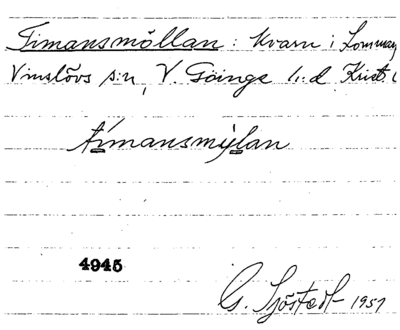 Timansmöllan : kvarn i Lommary
Vinslövs s:n, V. Göinge h. d. Krist. l
tímansmýlan
4945
G. Sjöstedt 1951